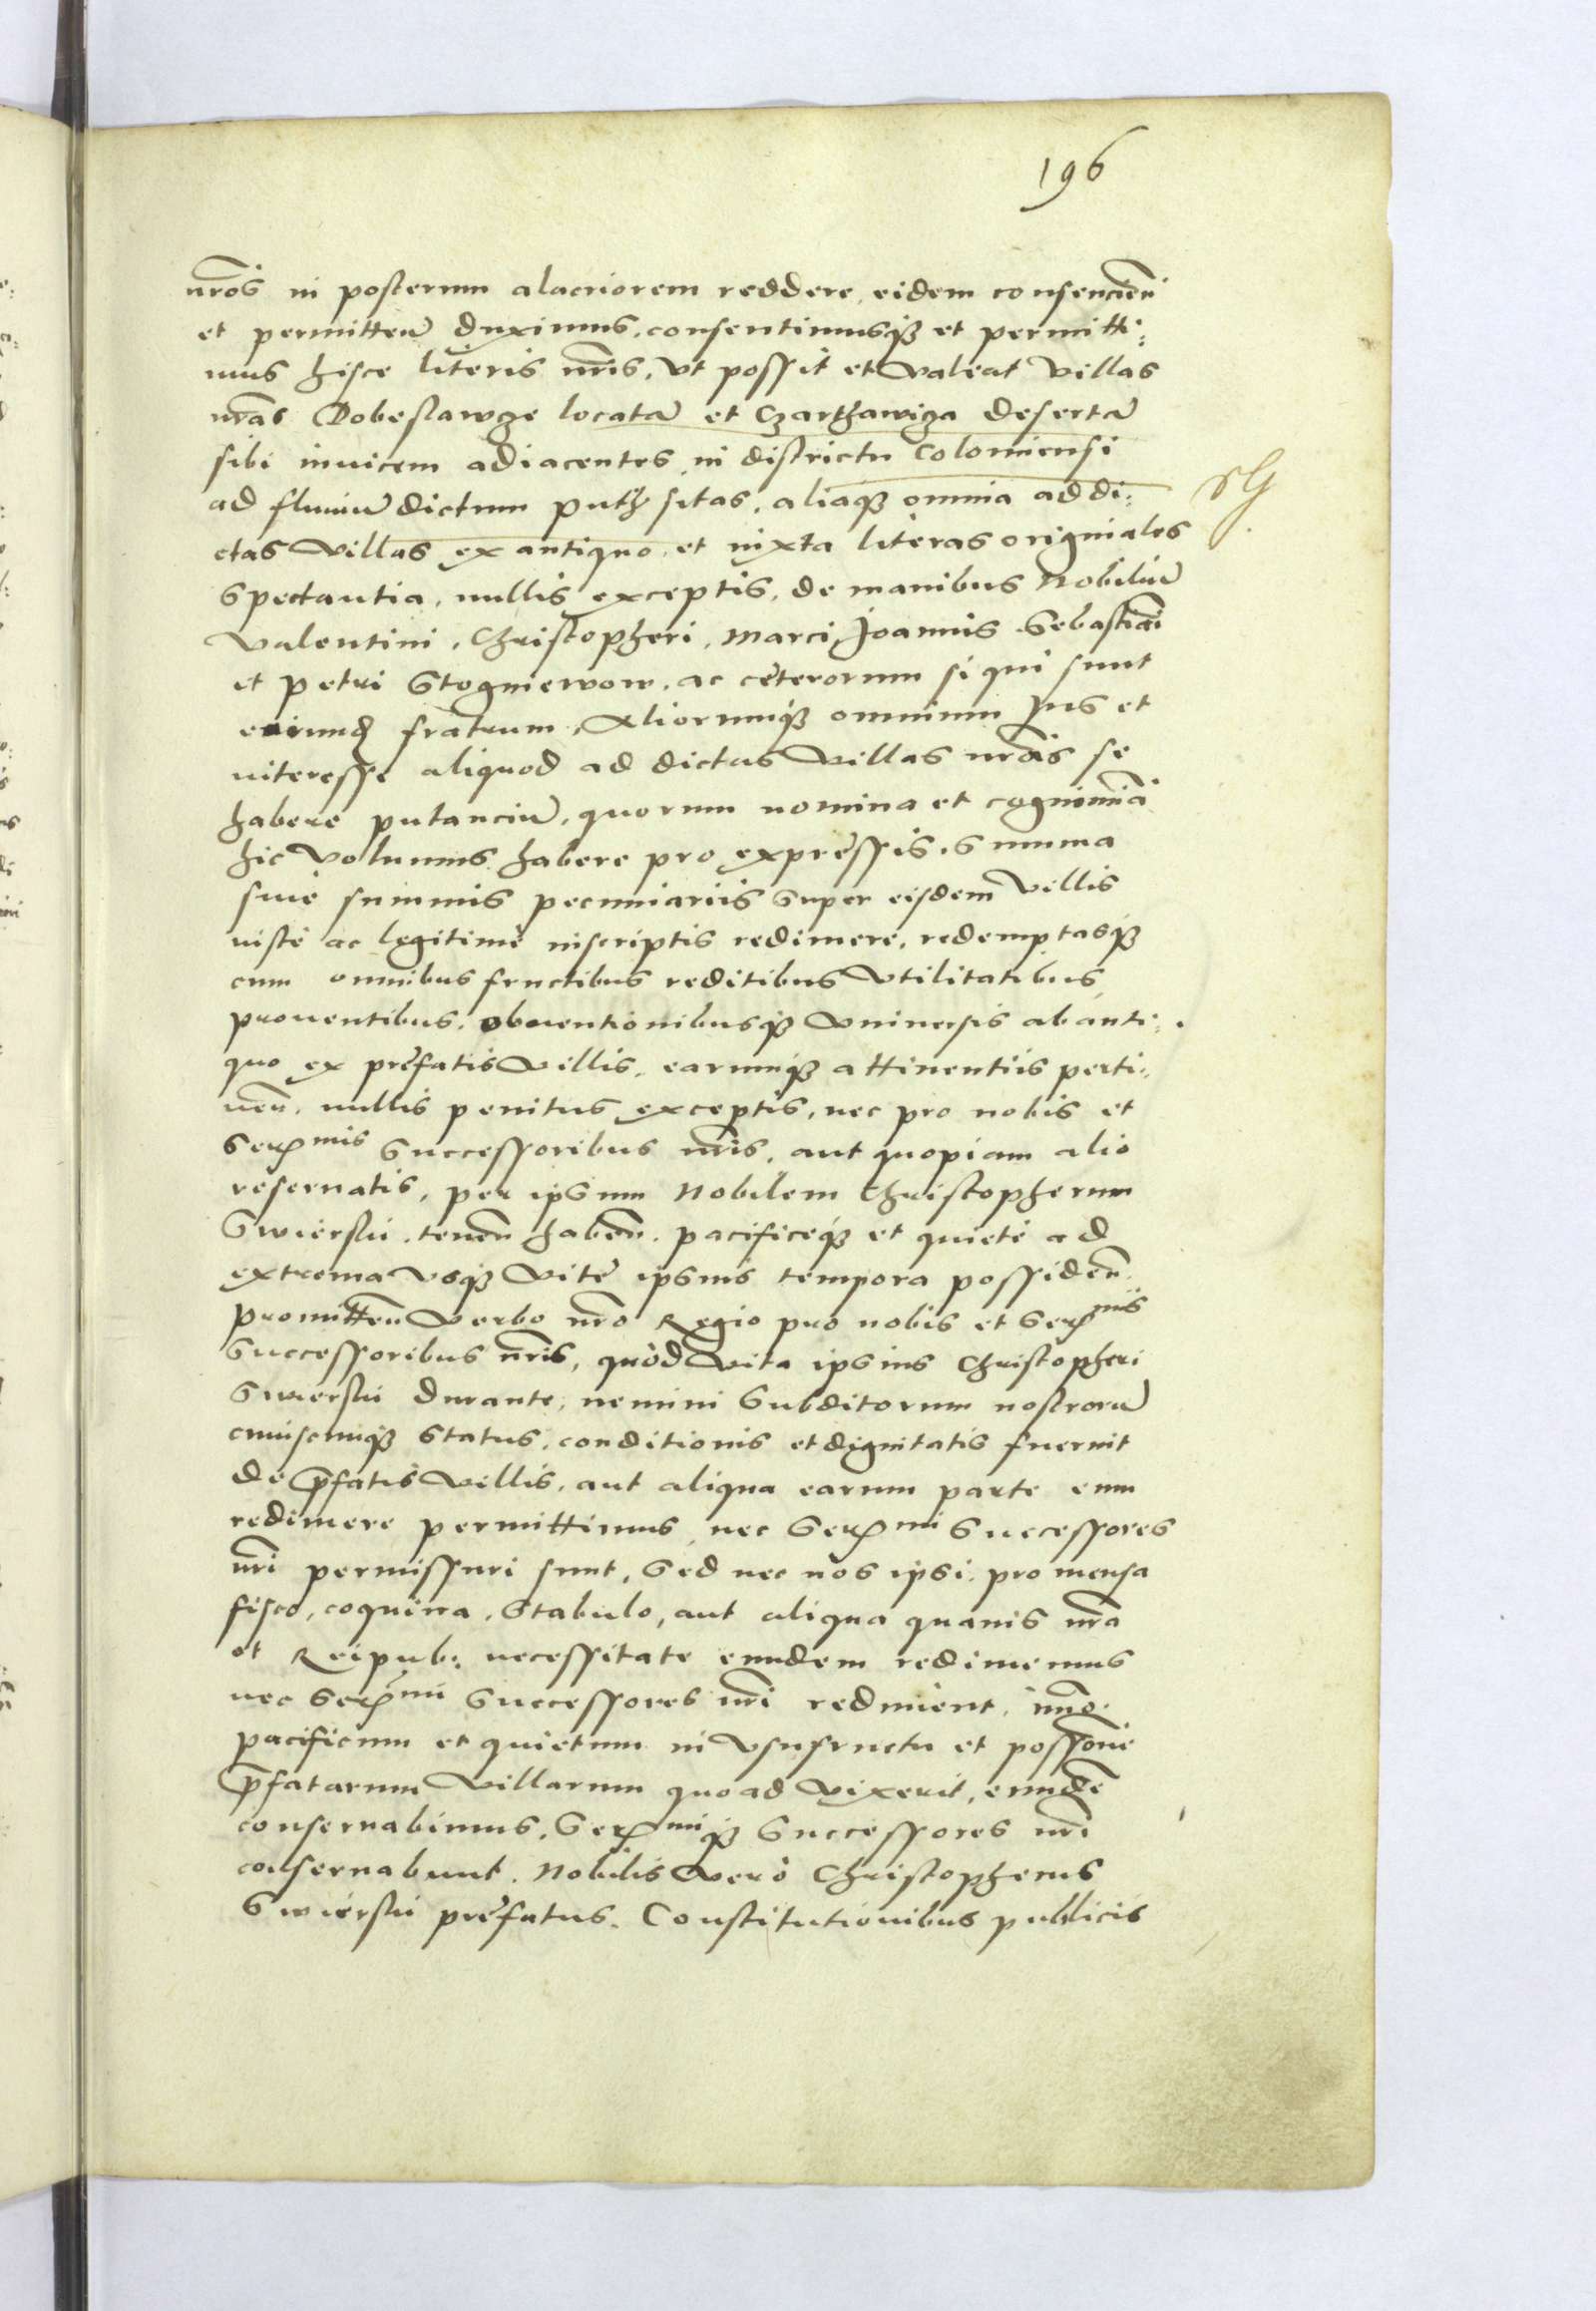 196
nr̃os in posterum alacriorem reddere, eidem consencien̄
et permitten̄ duximus, consentimusq₃ et permitti:
mus hisce literis nr̃is, vt possit et valeat villas
nr̃as Dobeslawcze locatā et Czarthawicza desertā
sibi inuicem adiacentes, in districtu Colomiensi
ad fluuiū dictum Puth sitas, aliaq₃ omnia ad di:
ctas villas ex antiquo, et iuxta literas originales
spectantia, nullis exceptis, de manibus Nobiliū
Valentini, Christopheri, Marci, Joannis, Sebastiāi
et Petri Stogniewow, ac ceterorum si qui sunt
eorund̃ fratrum, Aliorumq₃ omnium Jus et
interesse aliquod ad dictas villas nr̃as se
habere putanciū, quorum nomina et cognimīa
hic volumus habere pro expressis, summa
siue summis pecuniariis super eisdem villis
iuste ac legitimè inscriptis redimere, redemptasq₃
cum omnibus fructibus reditibus vtilitatibus
prouentibus, obuentionibusq₃ vniuersis ab anti:
quo ex prefatis villis, earumq₃ attinentiis perti:
nen̄, nullis penitus exceptis, nec pro nobis et
Ser^mis Successoribus nr̃is, aut quopiam alio
reseruatis, per ipsum Nobilem Christopherum
Swierski, tenen̄ haben̄, pacificeq₃ et quietè ad
extrema vsq₃ vite ipsius tempora possiden̄
promitten̄ verbo nr̃o Regio pro nobis et Ser^mis
Successoribus nr̃is, quòd vita ipsius Christopheri
Swierski durante, nemini Subditorum nostrorū
cuiuscunq₃ status, conditionis et dignitatis fuerint
de p̃fatis villis, aut aliqua earum parte eum
redimere permittimus, nec Ser^mi Successores
nr̃i permissuri sunt, Sed nec nos ipsi, pro mensa
fisco, coquina, Stabulo, aut aliqua quauis nr̃a
et Reipub: necessitate eundem redimemus
nec Ser^mi Successores nr̃i rediment, im̃o
pacificum et quietum in vsufructu et poss̃one
p̃fatarum villarum quoad vixerit, eundē
conseruabimus, Ser^miq₃ Successores nr̃i
conseruabunt. Nobilis verò Christopherus
Swierski prefatus, Constitutionibus publicis